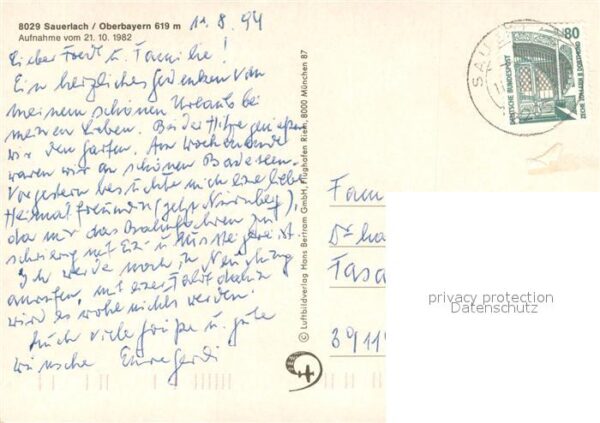 8029 Sauerlach / Oberbayern 619 m
Aufnahme vom 21. 10. 1982
11.8.94
Lieber Fredi u. Familie!
Ein herzliches Gedenken von
meinem schönen Urlaub bei
meinen Lieben. Bei der Hitze genießen
wir den Garten. Am Wochenende
waren wir an schönen Badeseen.
Vorgestern besuchte mich eine liebe
Heimatfreundin (jetzt Nürnberg),
da mir das Bahnfahren zu
schwierig mit Ein- u. Aussteigen ist
Ich werde noch in
anrufen, mit einer Fahrt dahin
wird es wohl nichts werden!
Auch viele Grüße u. gute
Wünsche Eure
© Luftbildverlag Hans Bertram GmbH, Flughafen Riem, 8000 München 87
SAUER
80
DEUTSCHE BUNDESPOST
ZECHE ZOLLERN II DORTMUND
Fam
Tasa
3911
privacy protection
Datenschutz